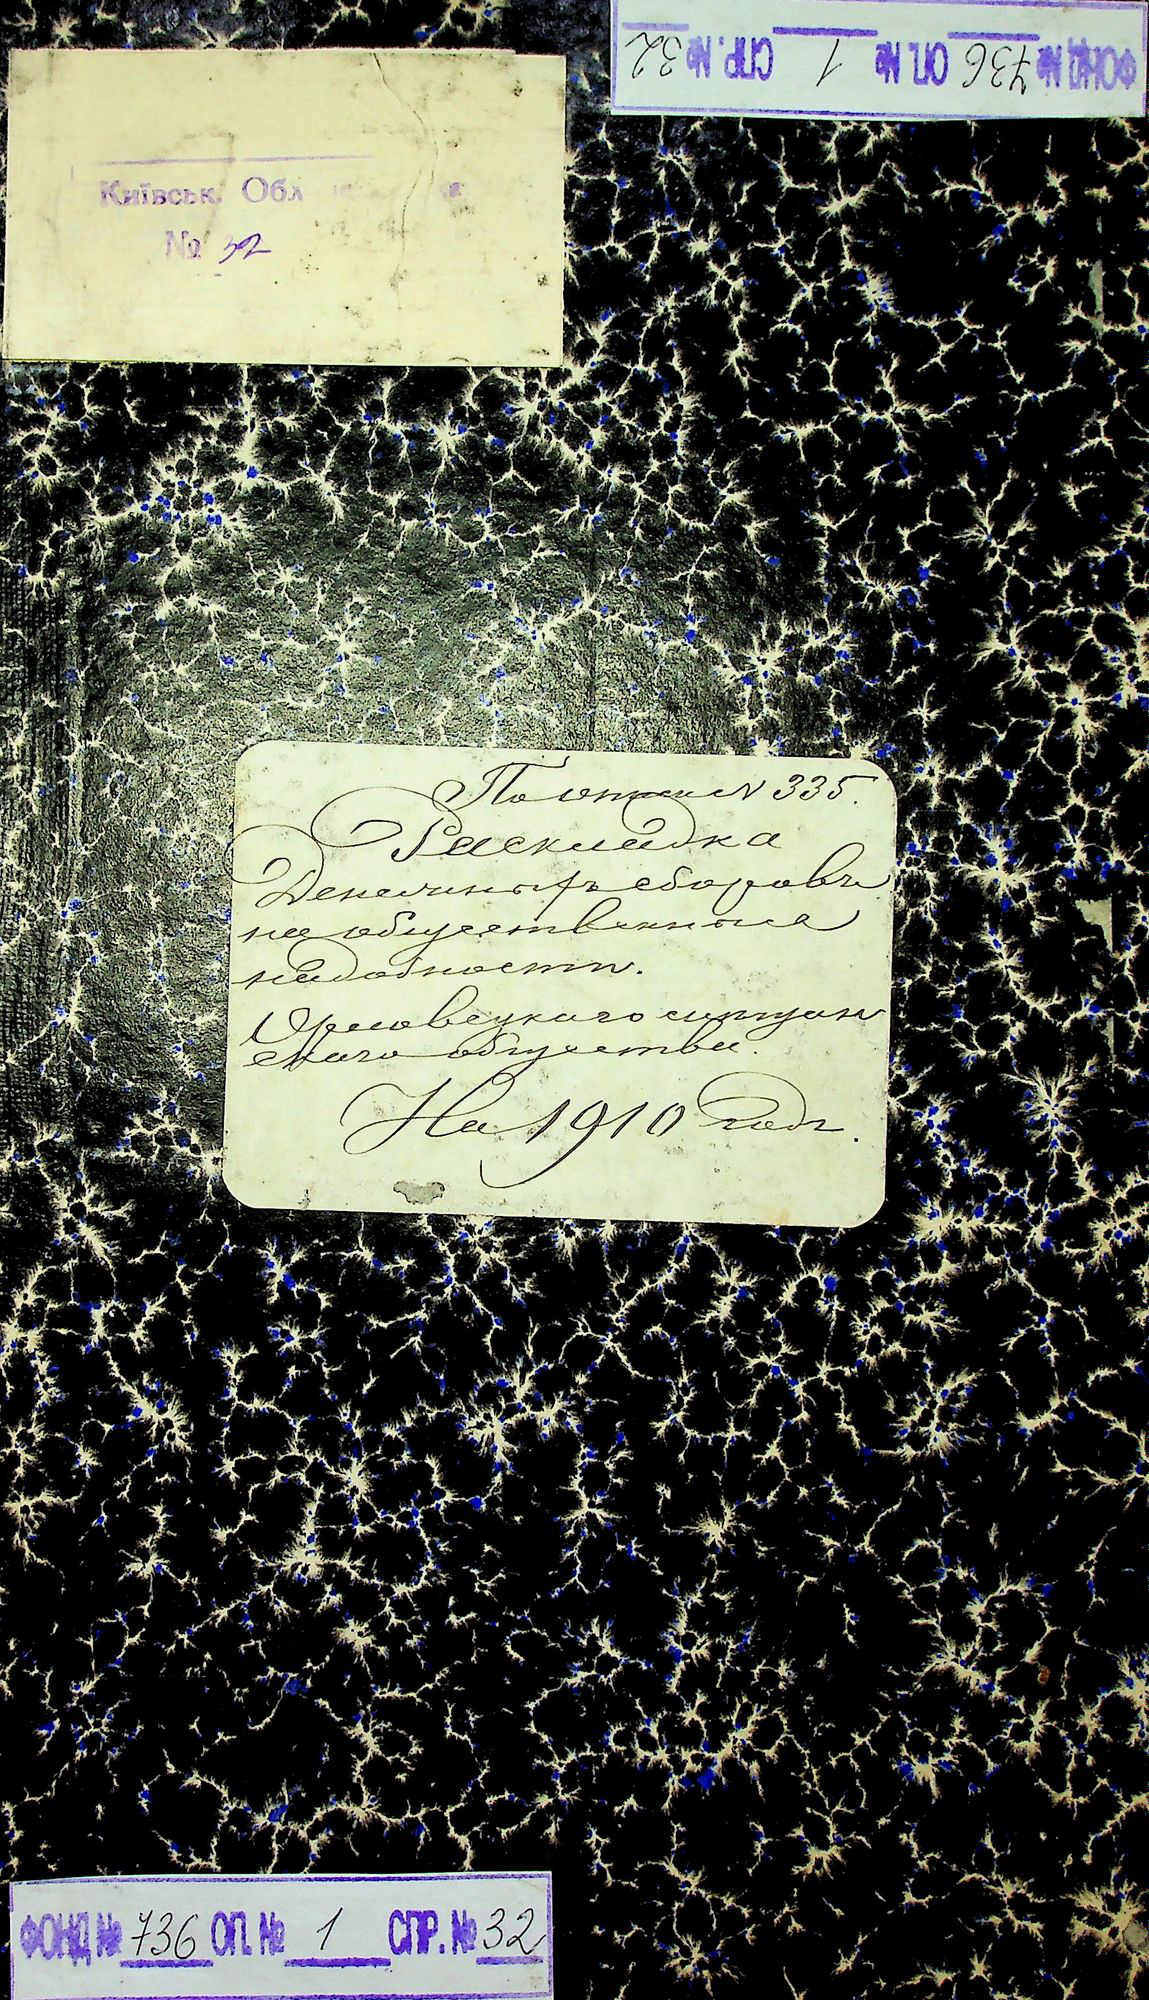 ФОНД № 736 ОП. № 1 СПР. № 32
Київськ. Обл
№ 32
По описи № 335.
Раскладка
Денежныхъ сборовъ
на общественныя
надобности.
мѣщан
скаго общества.
На 1910 годъ.
ФОНД № 736 ОП. № 1 СПР. № 32